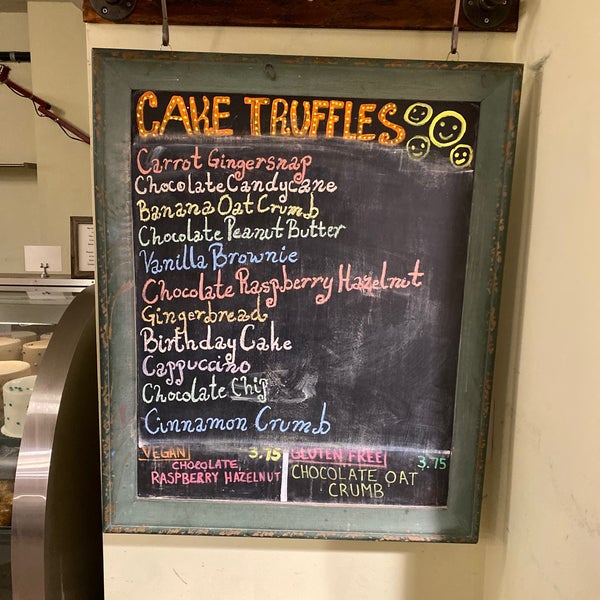 CAKE TRUFFLES
Carrot Gingersnap
Chocolate Candycane
Banana Oat Crumb
Chocolate Peanut Butter
Vanilla Brownie
Chocolate Raspberry Hazelnut
Gingerbread
Birthday Cake
Cappuccino
Chocolate Chip
Cinnamon Crumb
VEGAN 3.75
CHOCOLATE,
RASPBERRY HAZELNUT
GLUTEN FREE 3.75
CHOCOLATE OAT
CRUMB